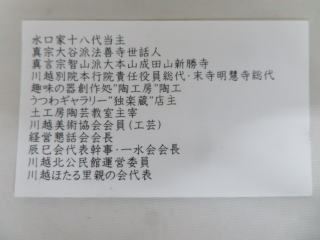 水口家十八代当主
真宗大谷派法善寺世話人
真言宗智山派大本山成田山新勝寺
川越別院本行院責任役員総代・末寺明慧寺総代
趣味の器創作処"陶工房"陶工
うつわギャラリー"独楽蔵"店主
土工房陶芸教室主宰
川越美術協会会員(工芸)
経営懇話会会長
辰巳会代表幹事・一水会会長
川越北公民館運営委員
川越ほたる里親の会代表